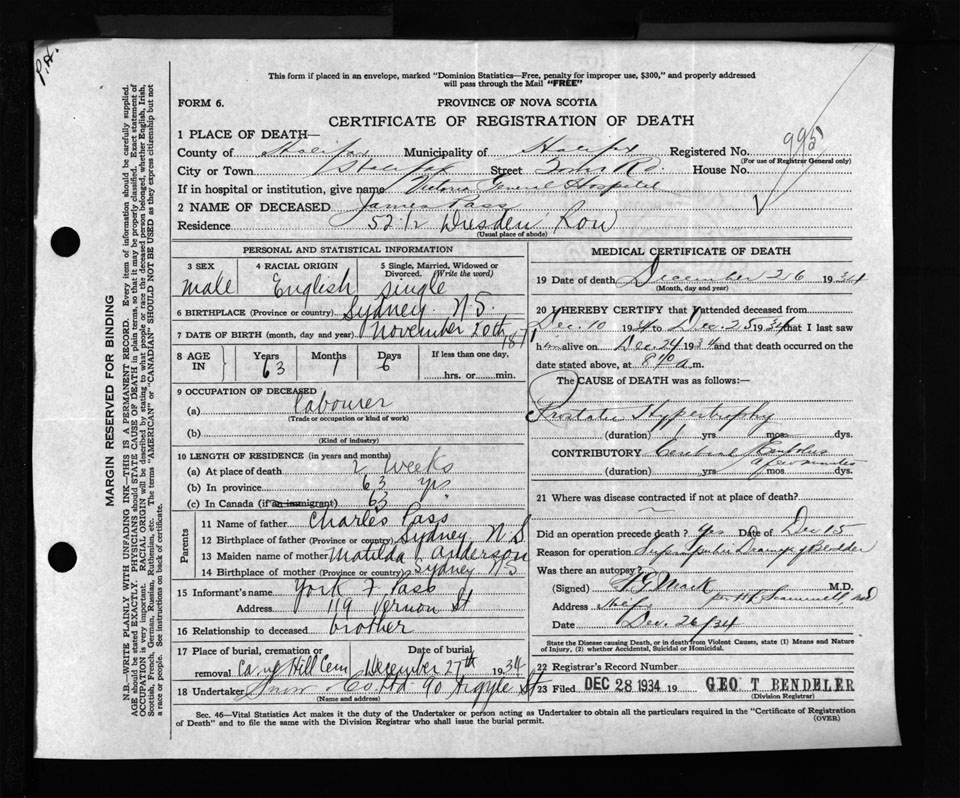 P.H.
This form if placed in an envelope, marked "Dominion Statistics—Free, penalty for improper use, $300," and properly addressed
will pass through the Mail "FREE"
FORM 6.
PROVINCE OF NOVA SCOTIA
CERTIFICATE OF REGISTRATION OF DEATH
995
1 PLACE OF DEATH—
County of Halifax Municipality of Halifax Registered No.
(For use of Registrar General only)
City or Town Halifax Street Tower Rd. House No.
If in hospital or institution, give name Victoria General Hospital
2 NAME OF DECEASED James Pass
Residence 52 1/2 Dresden Row
(Usual place of abode)
PERSONAL AND STATISTICAL INFORMATION
3 SEX 4 RACIAL ORIGIN 5 Single, Married, Widowed or Divorced. (Write the word)
male English single
6 BIRTHPLACE (Province or country) Sydney N S.
7 DATE OF BIRTH (month, day and year) November 20th 1871
8 AGE IN Years Months Days If less than one day,
63 1 6 hrs. or min.
9 OCCUPATION OF DECEASED
(a) Labourer
(Trade or occupation or kind of work)
(b)
(Kind of industry)
10 LENGTH OF RESIDENCE (in years and months)
(a) At place of death 2 weeks
(b) In province 63 yrs
(c) In Canada (if an immigrant) 63 "
Parents
11 Name of father Charles Pass
12 Birthplace of father (Province or country) Sydney N S
13 Maiden name of mother Matilda Anderson
14 Birthplace of mother (Province or country) Sydney NS
15 Informant's name York F Pass
Address 119 Vernon St
16 Relationship to deceased brother
17 Place of burial, cremation or removal Date of burial
Camp Hill Cem December 27th 1934
18 Undertaker Snow Co Ltd 90 Argyle St
(Name and address)
MEDICAL CERTIFICATE OF DEATH
19 Date of death December 26 1934
(Month, day and year)
20 I HEREBY CERTIFY that I attended deceased from
Dec. 10 1934 to Dec. 25 1934 that I last saw
him alive on Dec. 24 1934 and that death occurred on the
date stated above, at 8 40 a.m.
The CAUSE OF DEATH was as follows:—
Prostatic Hypertrophy
(duration) yrs mos. dys.
CONTRIBUTORY Cerebral Embolus
(duration) yrs a few minutes mos. dys.
21 Where was disease contracted if not at place of death?
Did an operation precede death? Yes Date of Dec 15
Reason for operation Suprapubic Drainage of Bladder
Was there an autopsy?
(Signed) Mack M.D.
Address Halifax per Scammell, MD
Date Dec. 26/34
State the Disease causing Death, or in death from Violent Causes, state (1) Means and Nature
of Injury, (2) whether Accidental, Suicidal or Homicidal.
22 Registrar's Record Number
23 Filed DEC 28 1934 19 GEO T BENDELER
(Division Registrar)
Sec. 46—Vital Statistics Act makes it the duty of the Undertaker or person acting as Undertaker to obtain all the particulars required in the "Certificate of Registration
of Death" and to file the same with the Division Registrar who shall issue the burial permit.
(OVER)
MARGIN RESERVED FOR BINDING
N.B.—WRITE PLAINLY WITH UNFADING INK—THIS IS A PERMANENT RECORD. Every item of information should be carefully supplied.
AGE should be stated EXACTLY. PHYSICIANS should STATE CAUSE OF DEATH in plain terms, so that it may be properly classified. Exact statement of
OCCUPATION is very important. RACIAL ORIGIN will be described by stating to what people or race the deceased person belonged, whether English, Irish,
Scottish, French, German, Russian, Ruthenian, etc. The terms "AMERICAN" or "CANADIAN" SHOULD NOT BE USED as they express citizenship but not
a race or people. See instructions on back of certificate.